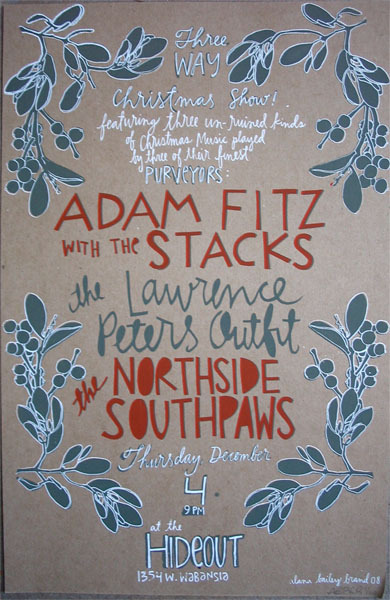 Three
WAY
Christmas Show!
featuring three un-ruined kinds
of Christmas Music played
by three of their finest
PURVEYORS:
ADAM FITZ
WITH THE STACKS
the Lawrence
Peters Outfit
the NORTHSIDE
SOUTHPAWS
Thursday December
4
9 PM
at the
HIDEOUT
1354 W. WABANSIA
dana bailey brand 08